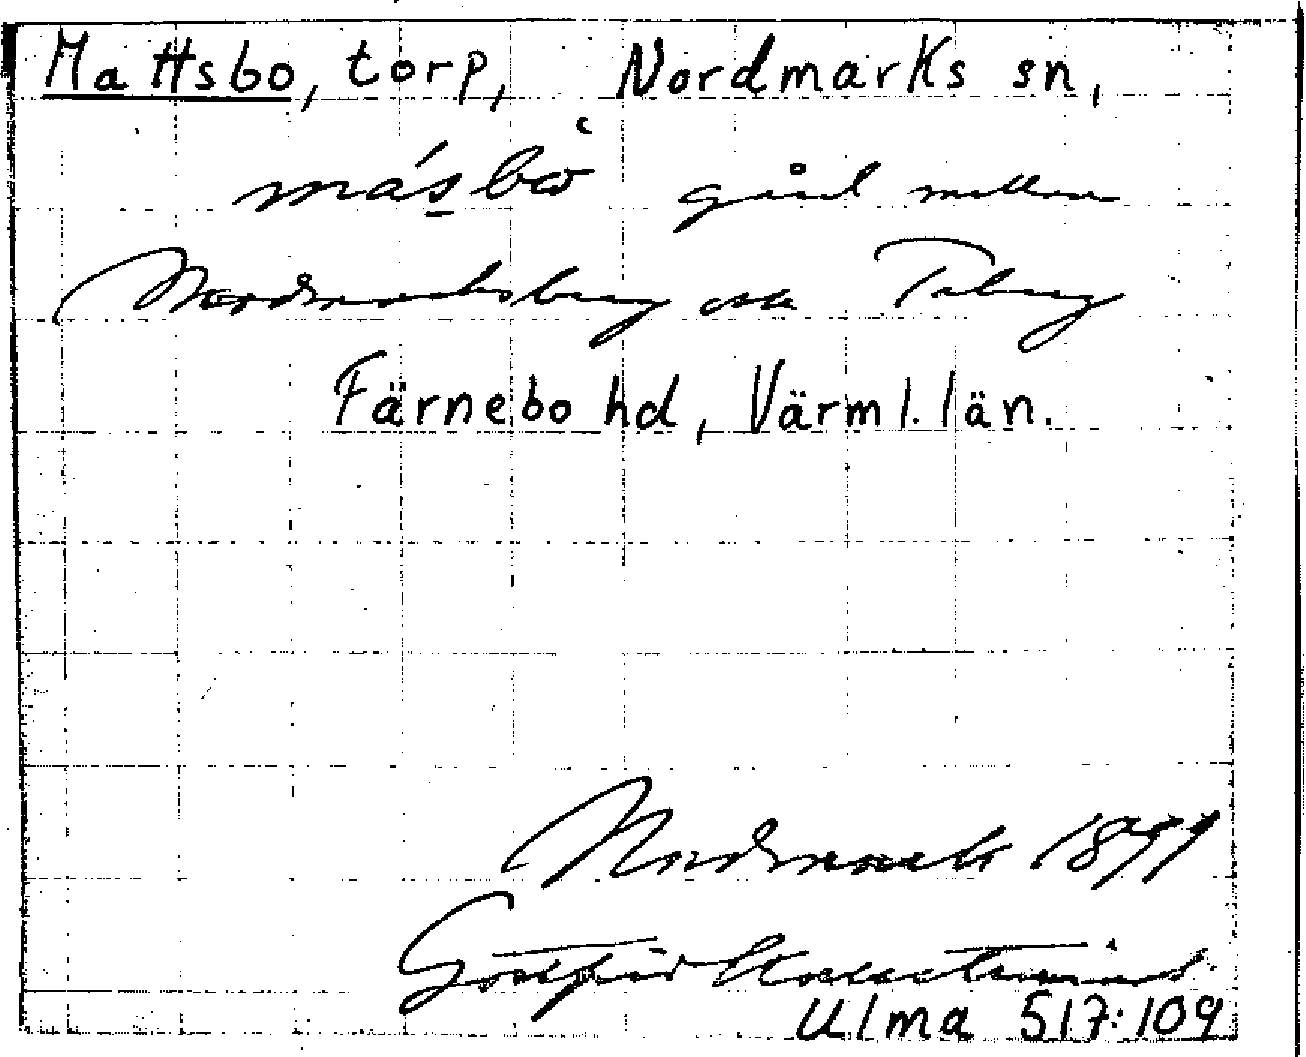 Mattsbo, torp, Nordmarks sn,
másbò gård mellan
Nordmarksberg och Taberg
Färnebo hd, Värml. län.
Nordmark 1899
Gottfrid Kallstenius
Ulma 517:109